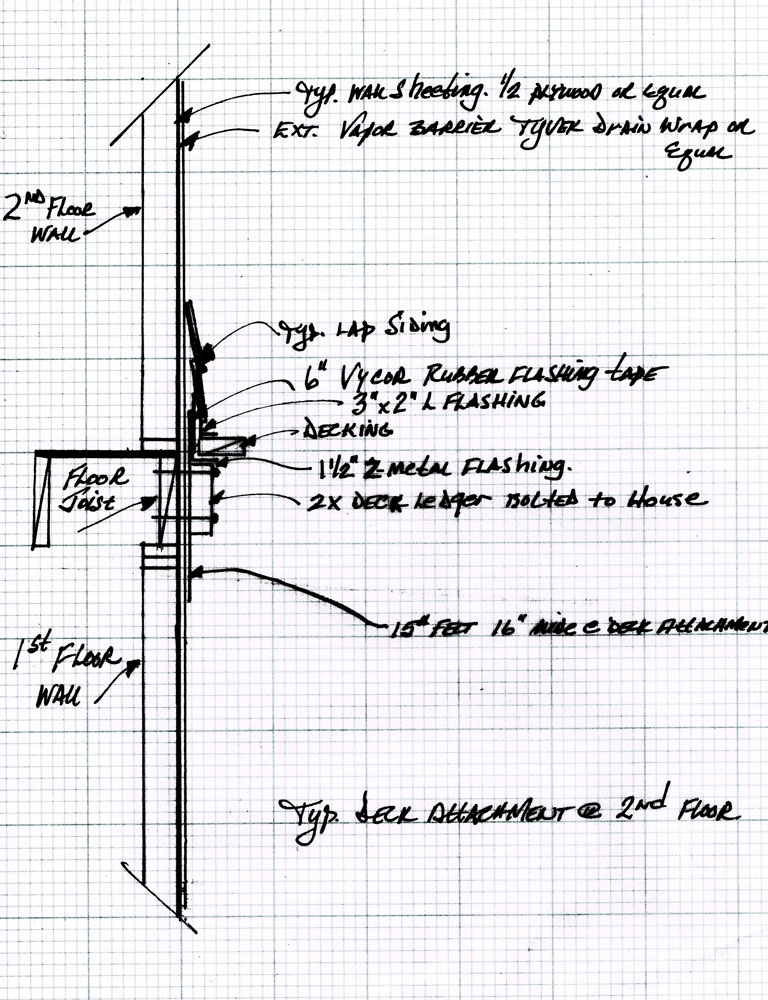 Typ. Wall Sheeting. 1/2 plywood or Equal
EXT. Vapor BARRIER TYVEK Drain Wrap or
Equal
2ND Floor
WALL
Typ. LAP Siding
6" VYCOR RUBBER FLASHING tAPE
3"x2" L FLASHING
DECKING
1 1/2" Z Metal FLASHING.
FLOOR
Joist
2X DECK Ledger BOLTED to House
15# FELT 16" wide @ DECK ATTACHMENT
1st FLOOR
WALL
Typ. DECK ATTACHMENT @ 2nd FLOOR